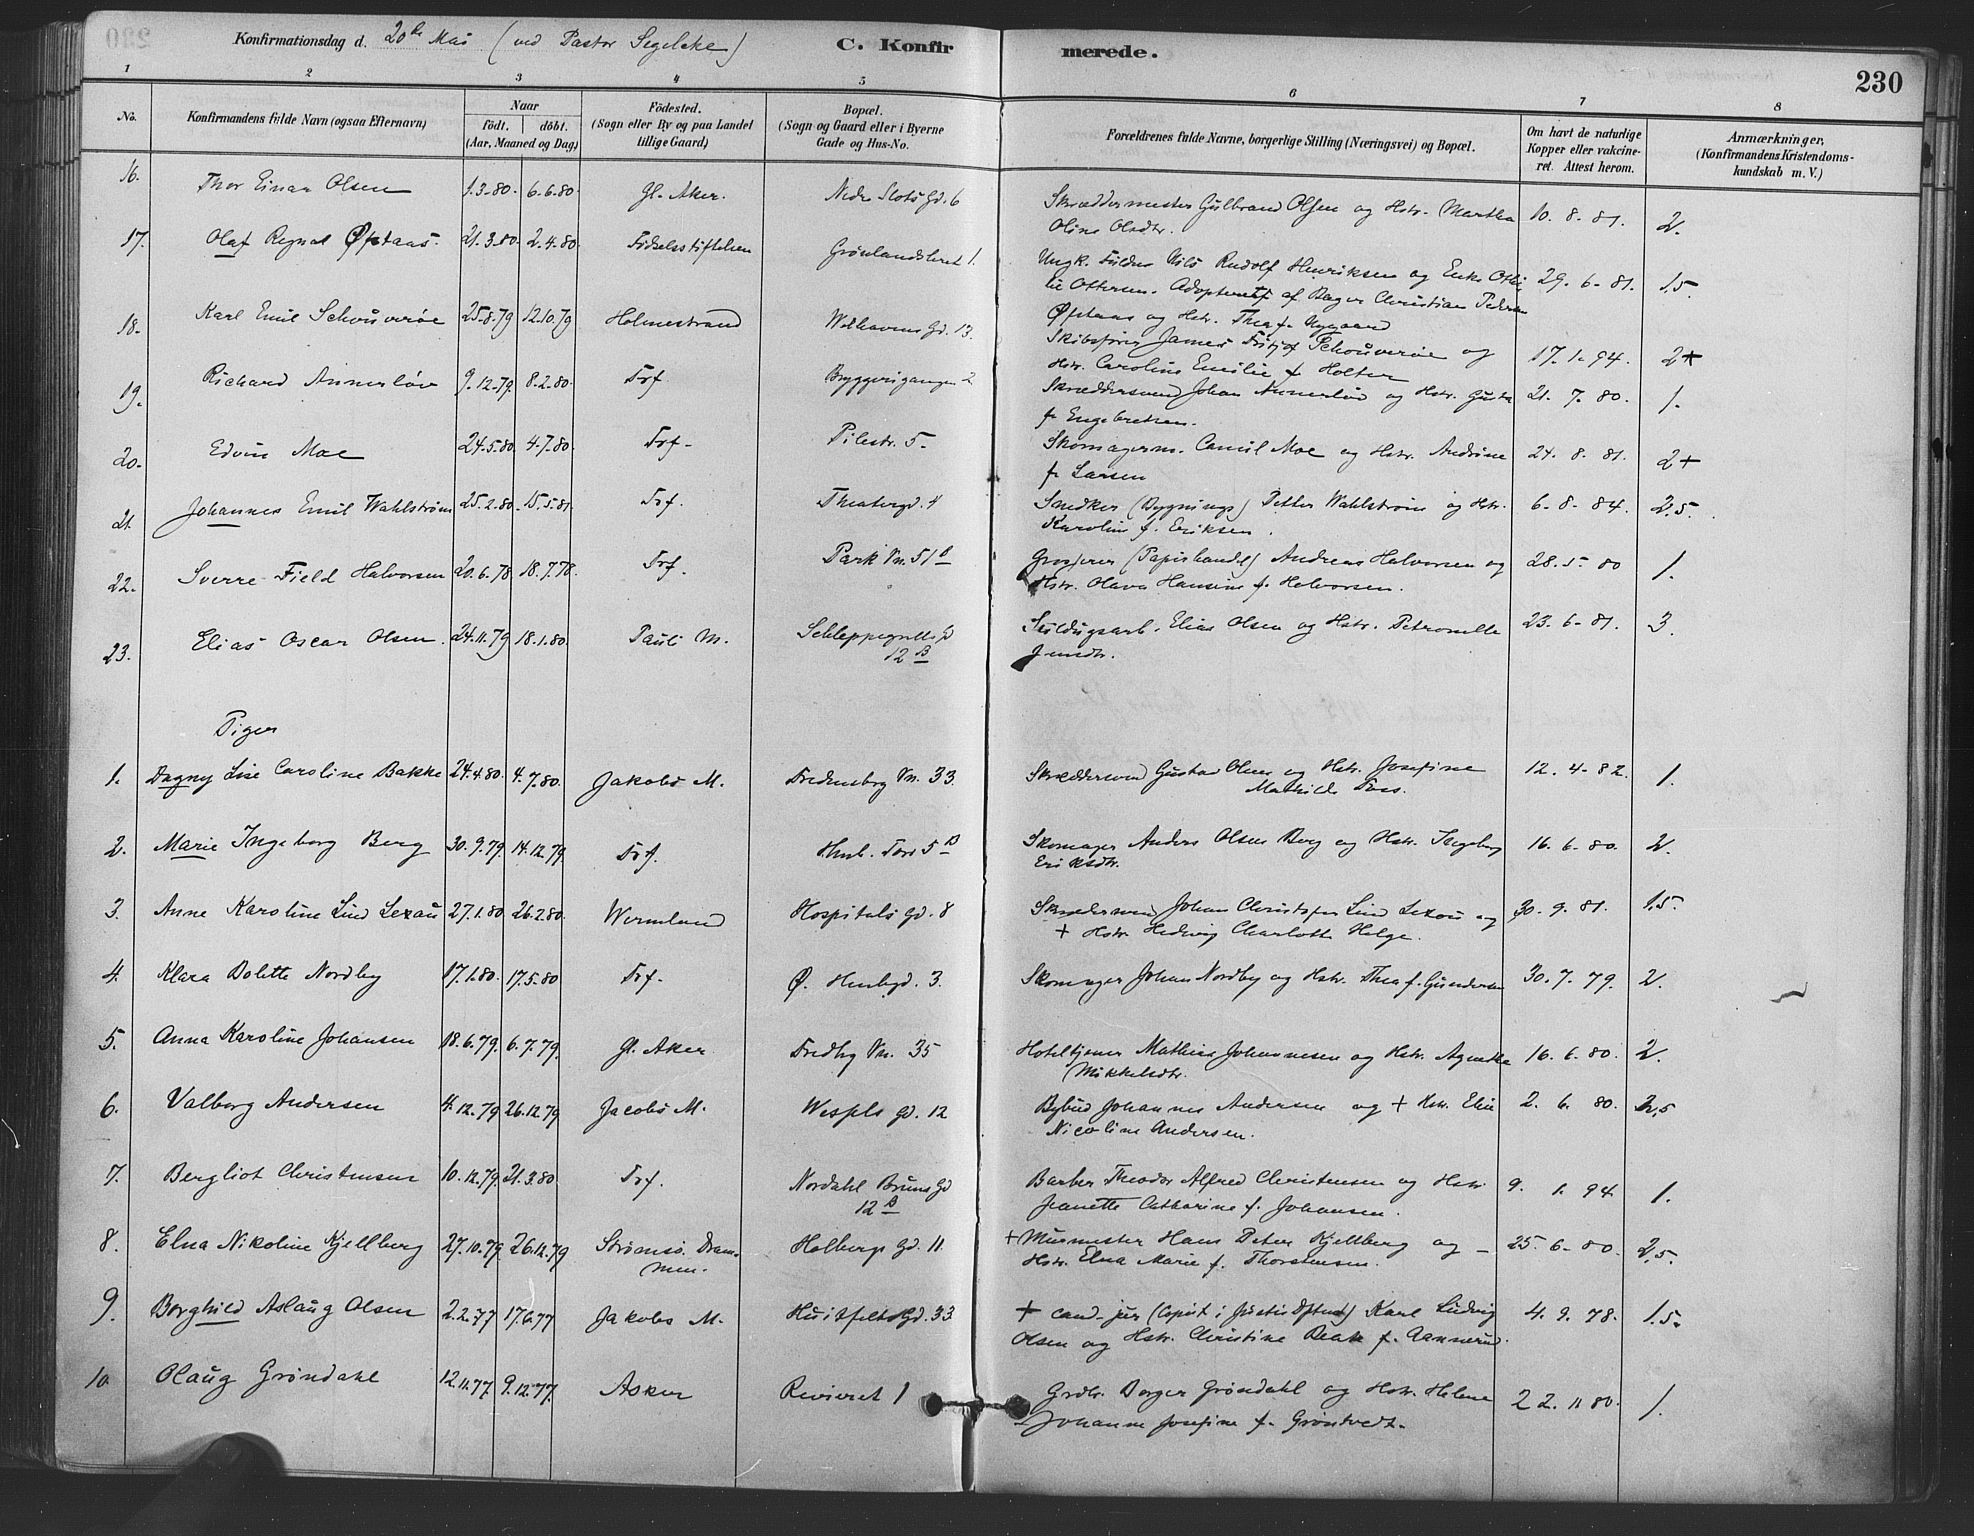 Konfirmationsdag d. 20de Mai (ved Pastor Segelcke) C. Konfirmerede. 230
1 2 3 4 5 6 7 8
No. Konfirmandens fulde Navn (ogsaa Efternavn) Naar født. døbt. (Aar, Maaned og Dag) Födested. (Sogn eller By og paa Landet tillige Gaard) Bopæl. (Sogn og Gaard eller i Byerne Gade og Hus-No. Forældrenes fulde Navne, borgerlige Stilling (Næringsvei) og Bopæl. Om havt de naturlige Kopper eller vakcineret. Attest herom. Anmærkninger, (Konfirmandens Kristendomskundskab m. V.)
16. Thor Einar Olsen 1.3.80. 6.6.80. Gl. Aker. Nedre Slots Gd. 6 Skræddermester Gulbrand Olsen og Hstr. Martha 10. 8. 81. 2.
Oline Olsdtr.
17. Olaf Ragnal Øfstaas. 21.3.80. 2.4.80. Fødselsstiftelsen Grønlandsleret 1. Ungk. Nils Rudolf Henriksen og Enke Otti- 29. 6. 81. 1,5.
lie Ottersen. Adopteret af Bager Christian Pedersen
Øfstaas og Hstr. Thea f. Nygaard
18. Karl Emil Schouverøe 25.8.79 12.10.79 Holmestrand Welhavens Gd. 13. Skibsfører James Fritjof Schouverøe og 17. 1. 94. 2+
Hstr. Caroline Emilie f. Holter
19. Richard Annerløv 9.12.79 8.2.80. Trf Bryggerigangen 2 Skræddersvend Johan Annerløv og Hstr. Gusta 21. 7. 80. 1.
f. Engebretsen.
20. Edvin Moe 24.5.80 4.7.80. Trf. Pilestr. 5. Skomagerm. Camil Moe og Hstr. Andrine 24. 8. 81. 2+
f. Larsen
21. Johannes Emil Wahlstrøm 25.2.80. 15.5.81. Trf. Theatergd. 4 Snedker (Bygnings) Petter Wahlstrøm og Hstr. 6. 8. 84. 2,5.
Karoline f. Eriksen.
22. Sverre Field Halvorsen 20.6.78 18.7.78. Trf. Park Vn. 51 B Grosserer (Papirhandel) Andreas Halvorsen og 28. 5. 80 1.
Hstr. Olava Hansine f. Halvorsen.
23. Elias Oscar Olsen. 24.11.79 18.1.80. Pauli M. Schleppegrells Gd Elias Olsen og Hstr. Petronelle 23. 6. 81. 3.
12 B Jensdtr.
Piger
1. Dagny Lise Caroline Bakke 24.4.80. 4.7.80. Jakobs M. Fredensborg Vn. 33. Skræddersvend Gustav Olsen og Hstr. Josefine 12. 4. 82. 1.
Mathilde Foss.
2. Marie Ingeborg Berg 30.9.79. 14.12.79. Trf. Hmb. Torv 5 B Skomager Anders Olsen Berg og Hstr. Ingeborg 16. 6. 80. 2.
Eriksdtr.
3. Anne Karoline Lind Lexau 27.1.80 26.2.80. Wermland Hospitals Gd. 8 Skræddersvend Johan Christofer Lind Lexau og 30. 9. 81. 1,5.
+ Hstr. Hedvig Charlotte Helge.
4. Klara Bolette Nordby 17.1.80. 17.5.80 Trf. Ø. Hmbgd. 3. Skomager Johan Nordby og Hstr. Thea f. Gundersen 30. 7. 79. 2.
5. Anna Karoline Johansen 18.6.79. 6.7.79. Gl. Aker Fredbg Vn. 35 Hoteltjener Mathias Johannesen og Hstr. Agnethe 16. 6. 80. 2.
Mikkelsdtr.
6. Valborg Andersen 4.12.79 26.12.79 Jacobs M. Wessels Gd. 12 Bybud Johannes Andersen og + Hstr. Elise 2. 6. 80. 2,5
Nicoline Andersen.
7. Bergliot Christensen 10.12.79 21.3.80 Trf. Nordahl Bruns Gd Barber Theodor Alfred Christensen og Hstr 9. 1. 94. 1.
12 B Jeanette Catharine f. Johansen.
8. Elna Nikoline Kjellberg 27.10.79 26.12.79 Strømsø. Drammen. Holbergs Gd. 11. + Murmester Hans Peter Kjellberg og – 25. 6. 80. 2,5.
Hstr. Elna Marie f. Thorstensen.
9. Borghild Aslaug Olsen 2.2.77 17.6.77 Jakobs M. Huitfelts Gd. 33 + cand. jur (Copist i Justisdptmt) Karl Ludvig 4. 9. 78. 1,5.
Olsen og Hstr. Christine Beate f. Aannerud.
10. Olaug Grøndahl 12.11.77 9.12.77. Asker Revieret 1 Grdbr. Borger Grøndahl og Hstr. Helene 22. 11 80. 1.
Johanne Josefine f. Grøntvedt.